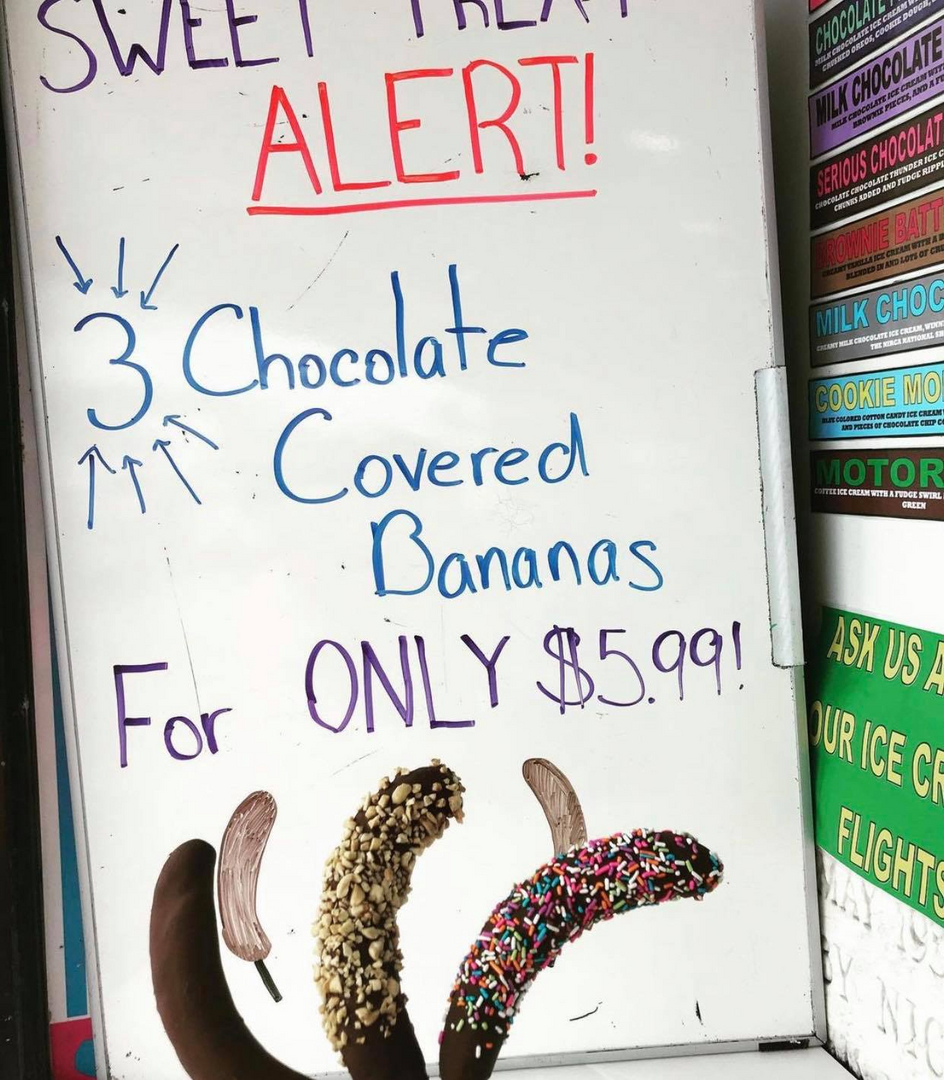 SWEET TREAT
ALERT!
3 Chocolate
Covered
Bananas
For ONLY $5.99!
CHOCOLATE
MILK CHOCOLATE ICE CREAM
CRUSHED OREOS, COOKIE DOUGH,
MILK CHOCOLATE
MILK CHOCOLATE ICE CREAM WITH
BROWNIE PIECES, AND A
SERIOUS CHOCOLAT
CHOCOLATE CHOCOLATE THUNDER ICE C
CHUNKS ADDED AND FUDGE RIPPL
BROWNIE BATT
CREAMY VANILLA ICE CREAM WITH A B
BLENDED IN AND LOTS OF
MILK CHOC
CREAMY MILK CHOCOLATE ICE CREAM, WINN
THE NIRCA NATIONAL
COOKIE MO
BLUE COLORED COTTON CANDY ICE CREAM
AND PIECES OF CHOCOLATE CHIP C
MOTOR
COFFEE ICE CREAM WITH A FUDGE SWIRL
GREEN
ASK US A
OUR ICE CR
FLIGHTS